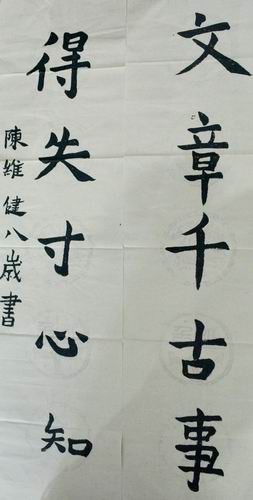 文章千古事
得失寸心知
陳維健八歲書